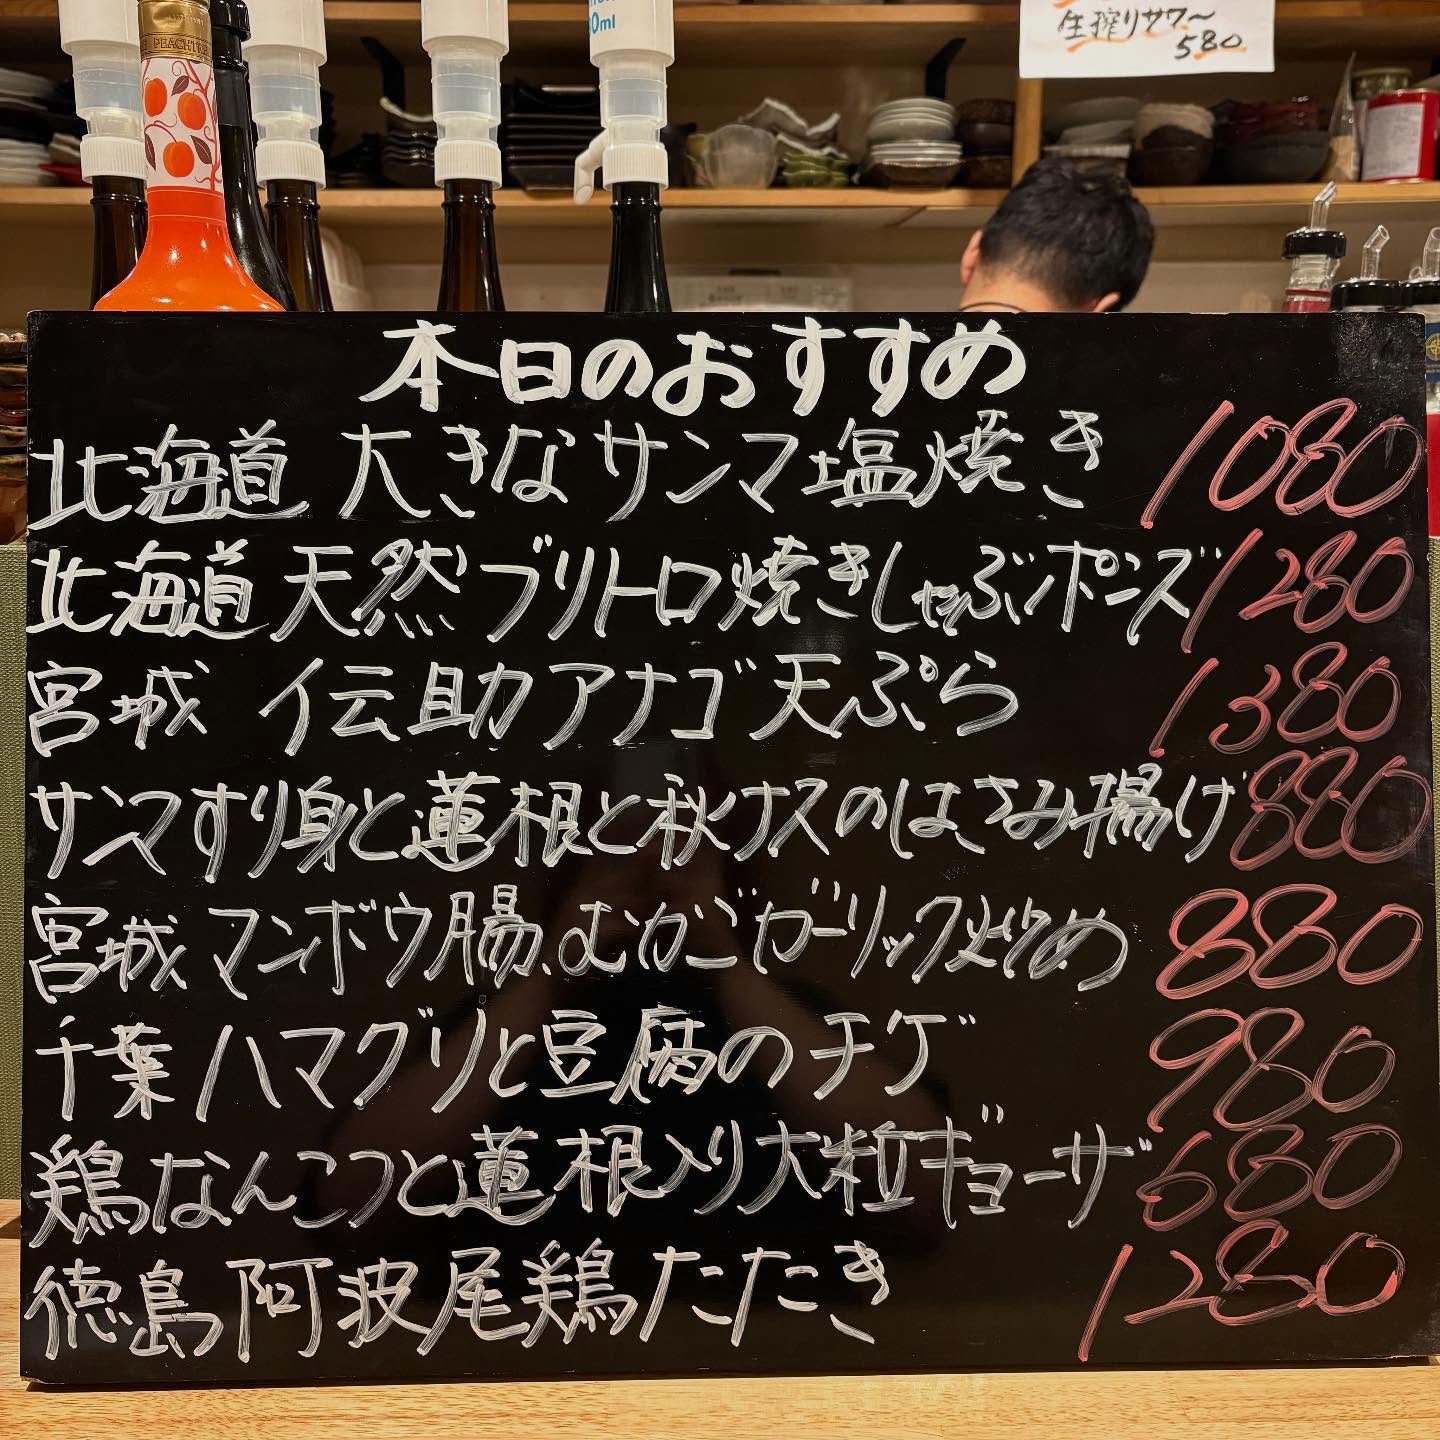 PEACHTRE
0ml
生搾りサワ〜
580
本日のおすすめ
北海道 大きなサンマ塩焼き 1080
北海道 天然ブリトロ焼きしゃぶポンズ 1280
宮城 伝助アナゴ天ぷら 1380
サンマすり身と蓮根と秋ナスのはさみ揚げ 880
宮城 マンボウ腸、むかごガーリック炒め 880
千葉 ハマグリと豆腐のチゲ 980
鶏なんこつと蓮根入り大粒ギョーザ 680
徳島 阿波尾鶏たたき 1280